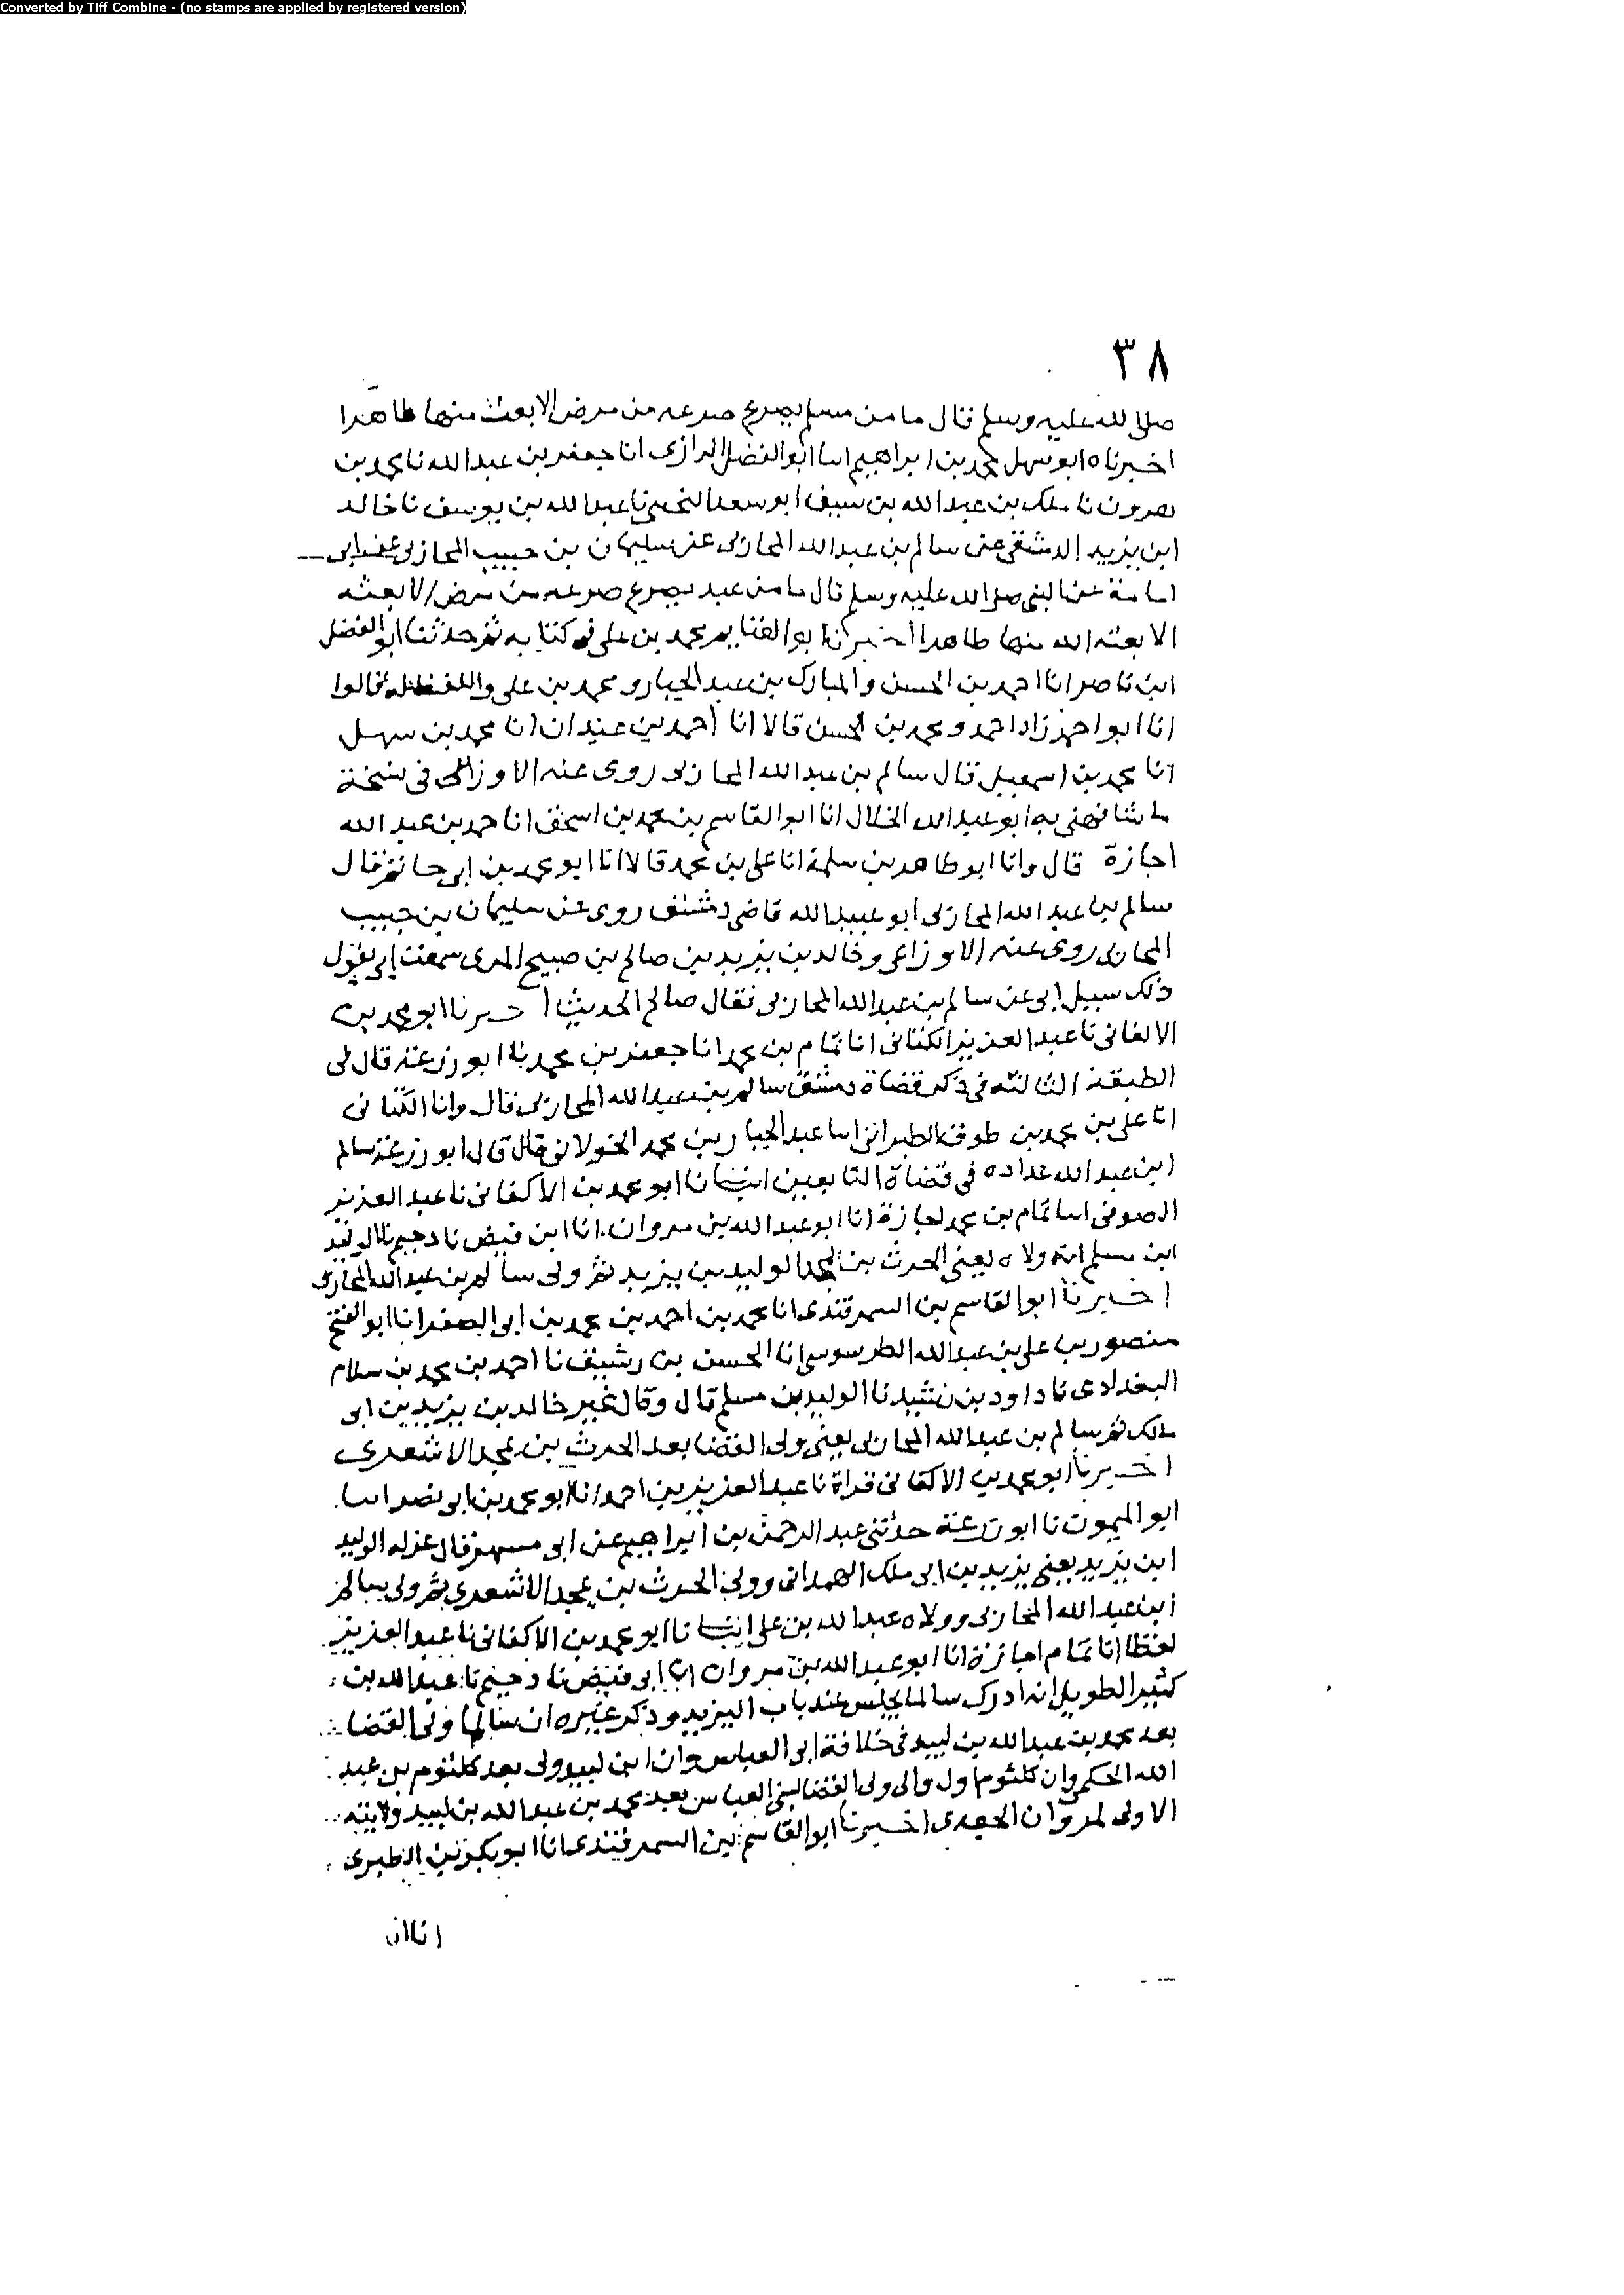 Converted by Tiff Combine - (no stamps are applied by registered version)
٣٨
صلى الله عليه وسلم قال ما من مسلم يصرع صرعه من مرض الا بعث منها طاهرا
اخبرناه ابو سهل محمد بن ابراهيم انا ابو الفضل الرازى انا جعفر بن عبد الله نا محمد بن
هرون نا ملك بن عبد الله بن سيف ابو سعد التجيبى نا عبد الله بن يوسف نا خالد
ابن يزيد الدمشقى عن سالم بن عبد الله المحاربى عن سليمان بن حبيب المحاربى عن ابى
امامة عن النبى صلى الله عليه وسلم قال ما من عبد يصرع صرعه من مرض لا بعثه
الا بعثه الله منها طاهرا اخبرنا ابو الغنايم محمد بن على فى كتابه ثم حدثنا ابو الفضل
ابن ناصر انا احمد بن الحسن والمبارك بن عبد الجبار ومحمد بن على واللفظ له قالوا
انا ابو احمد زاد احمد ومحمد بن الحسن قالا انا احمد بن عبدان انا محمد بن سهل
انا محمد بن اسمعيل قال سالم بن عبد الله المحاربى روى عنه الاوزاعى فى نسخة
ما شافهنى به ابو عبد الله الخلال انا ابو القاسم بن محمد بن اسحق انا حمد بن عبد الله
اجازة قال وانا ابو طاهر بن سلمة انا على بن محمد قالا انا ابو محمد بن ابى حاتم قال
سالم بن عبد الله المحاربى ابو عبيد الله قاضى دمشق روى عن سليمان بن حبيب
المحاربى روى عنه الاوزاعى وخالد بن يزيد بن صالح بن صبيح المرى سمعت ابى يقول
ذلك سيل ابى عن سالم بن عبد الله المحاربى فقال صالح الحديث اخبرنا ابو محمد بن
الاكفانى نا عبد العزيز الكتانى انا تمام بن محمد انا جعفر بن محمد نا ابو زرعة قال فى
الطبقة الثالثه فى ذكر قضاة دمشق سالم بن عبد الله المحاربى قال وانا الكتانى
انا على بن محمد بن طوق الطبرانى انا عبد الجبار بن محمد الخولانى قال قال ابو زرعة سالم
ابن عبد الله عداده فى قضاة التابعين انبانا ابو محمد بن الاكفانى نا عبد العزيز
الصوفى انا تمام بن محمد اجازة انا ابو عبد الله بن مروان انا ابن فيض نا دحيم نا الوليد
ابن مسلم انه ولاه يعنى الحرث بن يمجد الوليد بن يزيد ثم ولى سالم بن عبد الله المحاربى
اخبرنا ابو القاسم بن السمرقندى انا محمد بن احمد بن محمد بن ابى الصقر انا ابو الفتح
منصور بن على بن عبد الله الطرسوسى انا الحسن بن رشيق نا احمد بن محمد بن سلام
البغدادى نا داود بن رشيد نا الوليد بن مسلم قال وقال غير خالد بن يزيد بن ابى
ملك ثم سالم بن عبد الله المحاربى يعنى ولى القضا بعد الحرث بن يمجد الاشعرى
اخبرنا ابو محمد بن الاكفانى قراة نا عبد العزيز بن احمد انا ابو محمد بن ابى نصر انا
ابو الميمون نا ابو زرعة حدثنى عبد الرحمن بن ابراهيم عن ابى مسهر قال عزله الوليد
ابن يزيد يعنى يزيد بن ابى ملك الهمدانى وولى الحرث بن يمجد الاشعرى ثم ولى سالم
ابن عبد الله المحاربى وولاه عبد الله بن على انبانا ابو محمد بن الاكفانى نا عبد العزيز
لفظا انا تمام اجازة انا ابو عبد الله بن مروان انا ابن فيض نا دحيم نا عبد الله بن
كثير الطويل انه ادرك سالما يجلس عند باب البريد وذكر غيره ان سالما ولى القضا
بعد محمد بن عبد الله بن لبيد فى خلافة ابى العباس وان ابن لبيد ولى بعد كلثوم بن عبد
الله الحكمى وان كلثوما ول والى ولى القضا لبنى العباس بعد محمد بن عبد الله بن لبيد ولايته
الاولى لمروان الجعدى اخبرنا ابو القاسم بن السمرقندى انا ابو بكر بن الطبرى
انا ان